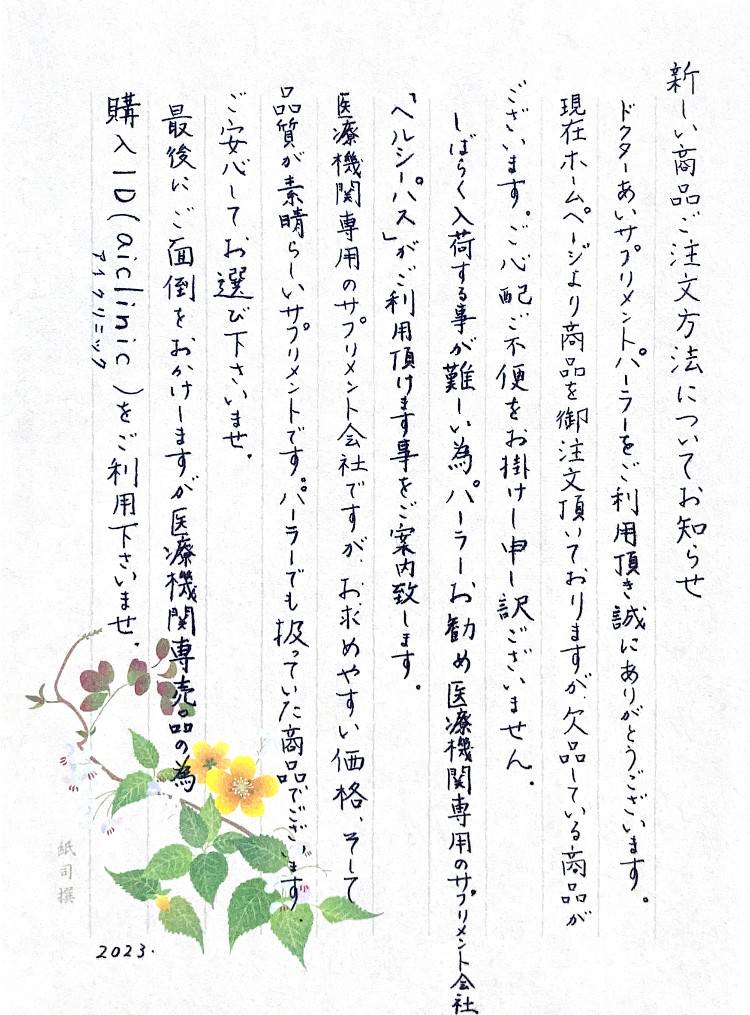 新しい商品ご注文方法についてお知らせ
ドクターあいサプリメントパーラーをご利用頂き誠にありがとうございます。
現在ホームページより商品を御注文頂いておりますが、欠品している商品が
ございます。ご心配ご不便をお掛けし申し訳ございません。
しばらく入荷する事が難しい為パーラーお勧め医療機関専用のサプリメント会社
「ヘルシーパス」がご利用頂けます事をご案内致します。
医療機関専用のサプリメント会社ですが、お求めやすい価格、そして
品質が素晴らしいサプリメントです。パーラーでも扱っていた商品でございます。
ご安心してお選び下さいませ。
最後にご面倒をおかけしますが医療機関専売品の為
購入ID(aiclinic)をご利用下さいませ。
アイクリニック
紙司撰
2023.